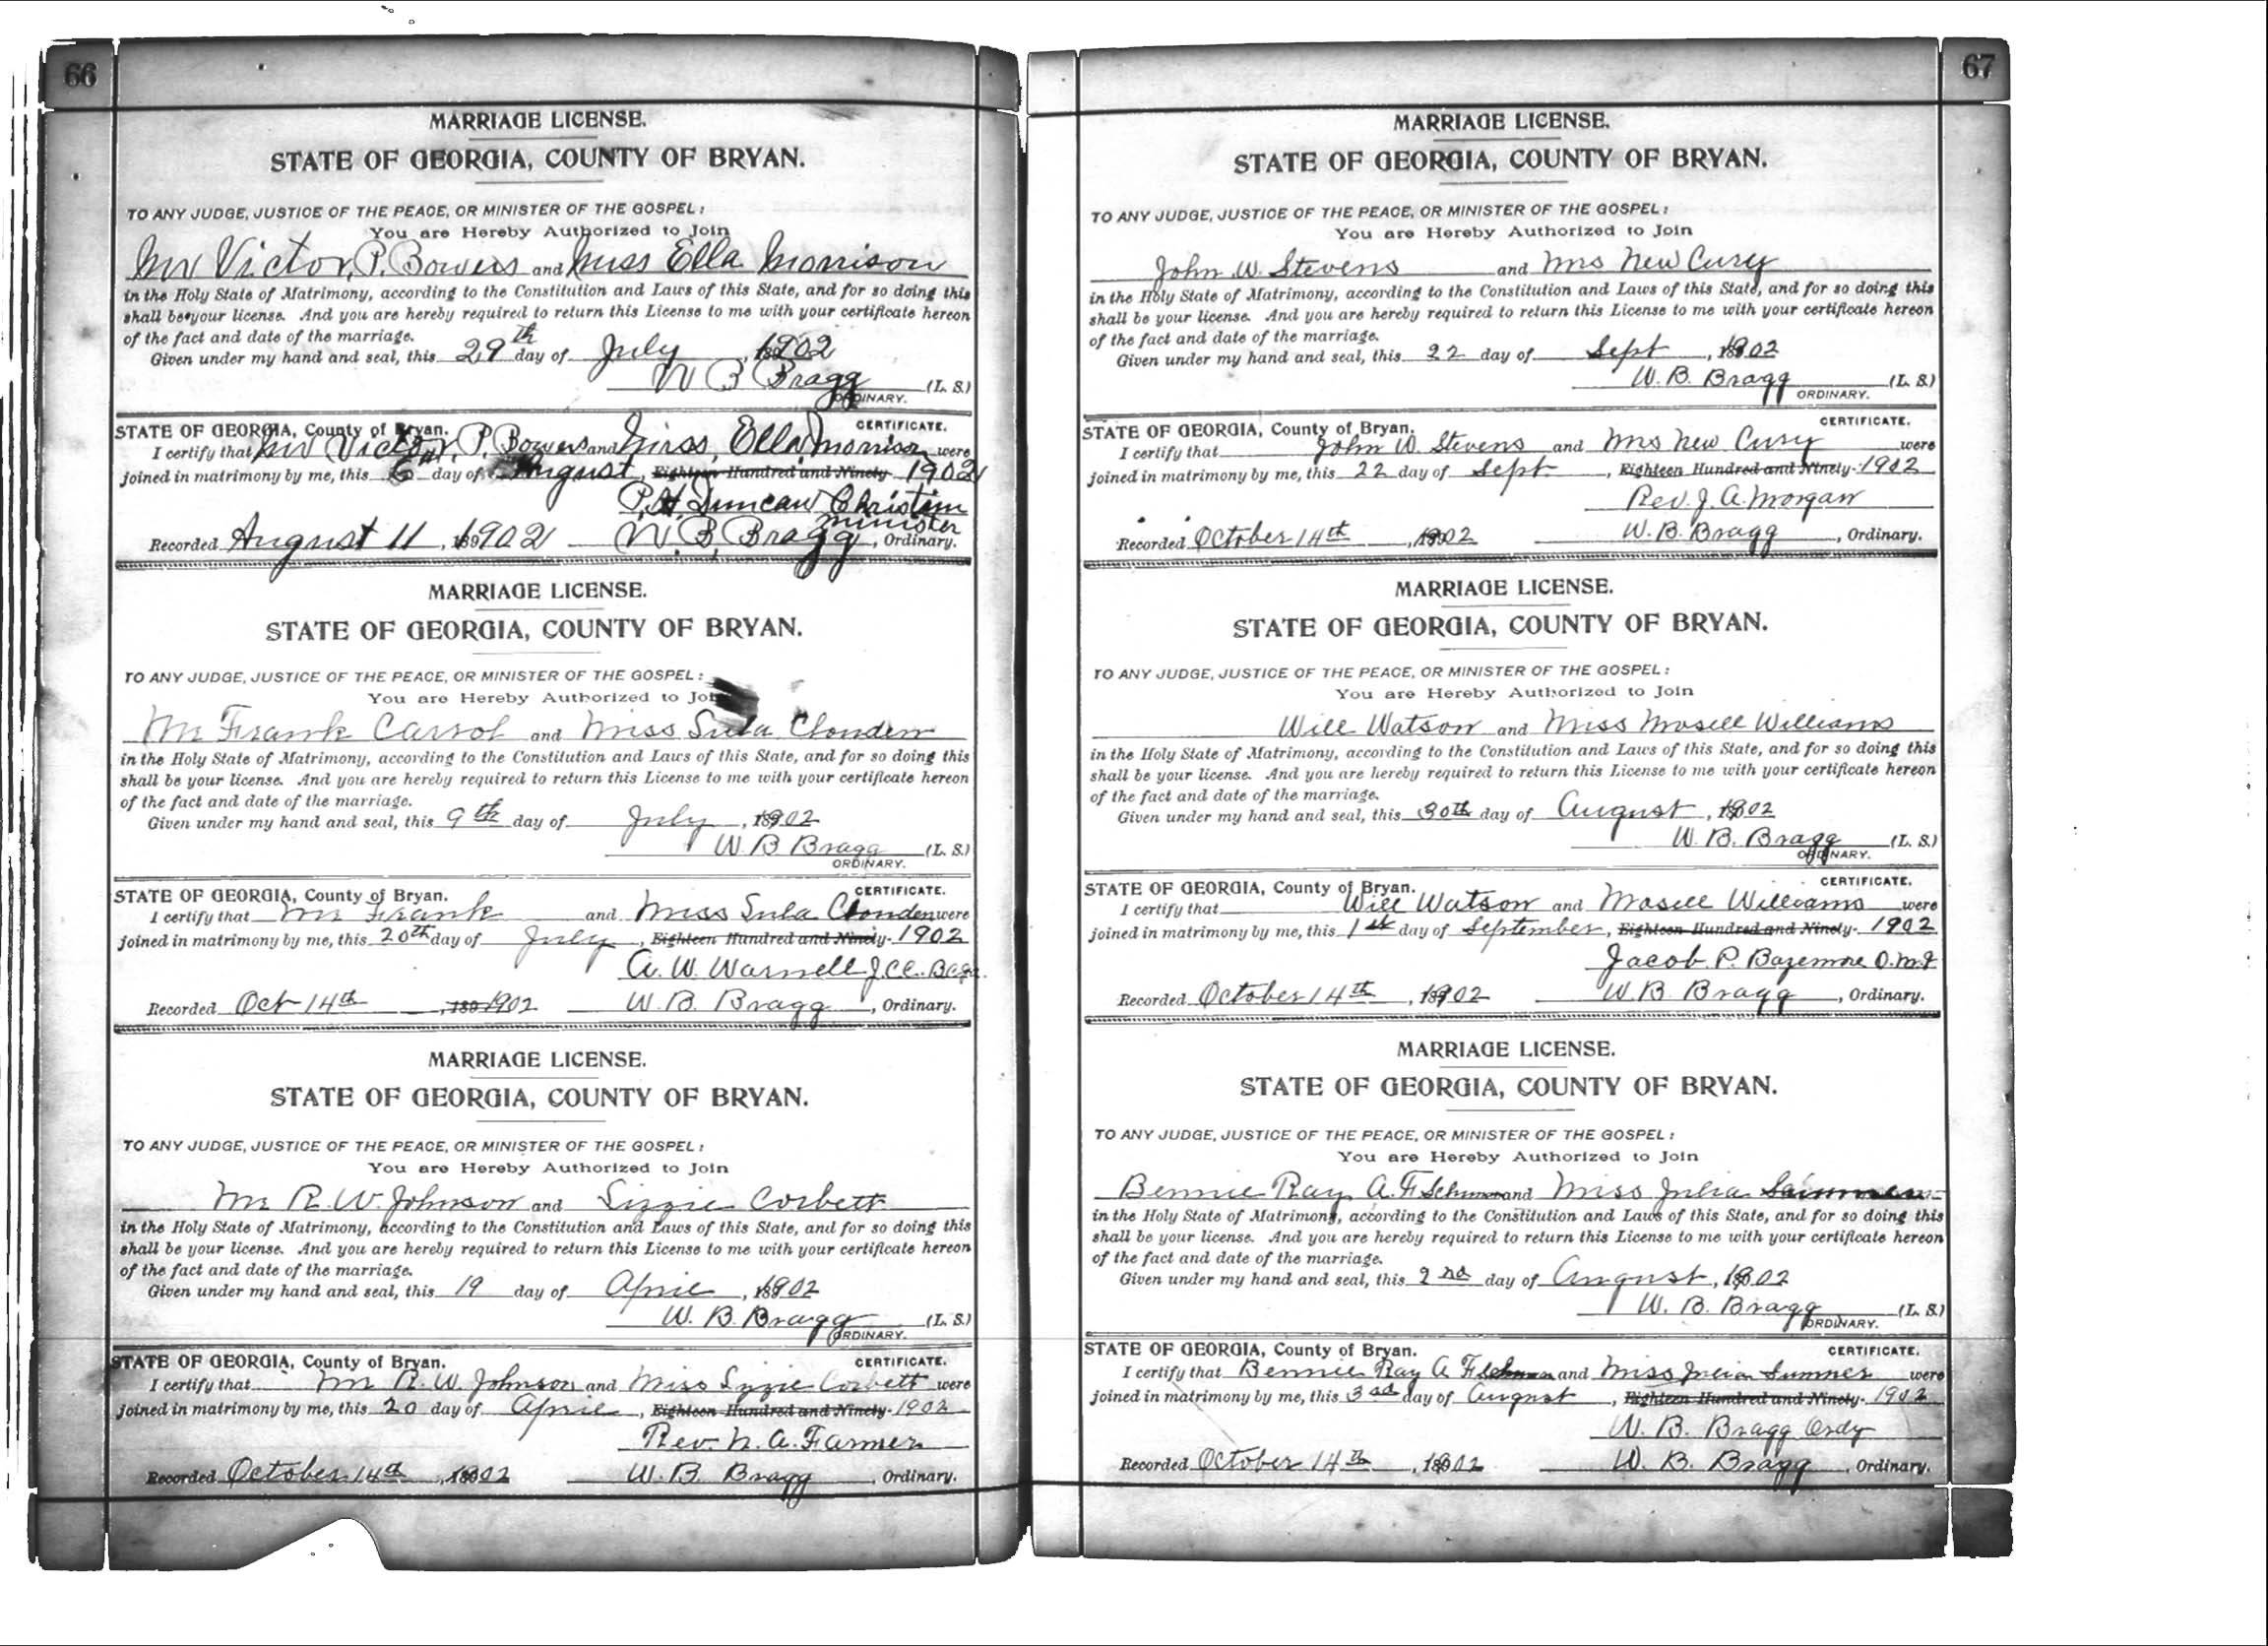 66
MARRIAGE LICENSE.
STATE OF GEORGIA, COUNTY OF BRYAN.
TO ANY JUDGE, JUSTICE OF THE PEACE, OR MINISTER OF THE GOSPEL:
You are Hereby Authorized to Join
Mr Victor, P. Bowers and Miss Ella Morrison
in the Holy State of Matrimony, according to the Constitution and Laws of this State, and for so doing this
shall be your license. And you are hereby required to return this License to me with your certificate hereon
of the fact and date of the marriage.
Given under my hand and seal, this 29th day of July, 1902
W B Bragg (L. S.)
ORDINARY.
STATE OF GEORGIA, County of Bryan. CERTIFICATE.
I certify that Mr Victor, P. Bowers and Miss, Ella, Morrison were
joined in matrimony by me, this 6th day of August, Eighteen Hundred and Ninety 1902
P. H. Duncan Christian
minister
Recorded August 11, 1902 W. B. Bragg, Ordinary.
MARRIAGE LICENSE.
STATE OF GEORGIA, COUNTY OF BRYAN.
TO ANY JUDGE, JUSTICE OF THE PEACE, OR MINISTER OF THE GOSPEL:
You are Hereby Authorized to Join
Mr Frank Carrol and Miss Sula Clonden
in the Holy State of Matrimony, according to the Constitution and Laws of this State, and for so doing this
shall be your license. And you are hereby required to return this License to me with your certificate hereon
of the fact and date of the marriage.
Given under my hand and seal, this 9th day of July, 1902
W. B Bragg (L. S.)
ORDINARY.
STATE OF GEORGIA, County of Bryan. CERTIFICATE.
I certify that Mr Frank and Miss Sula Clonden were
joined in matrimony by me, this 20th day of July, Eighteen Hundred and Ninety- 1902
A. W. Warnell
Recorded Oct 14th, 1902 W. B. Bragg, Ordinary.
MARRIAGE LICENSE.
STATE OF GEORGIA, COUNTY OF BRYAN.
TO ANY JUDGE, JUSTICE OF THE PEACE, OR MINISTER OF THE GOSPEL:
You are Hereby Authorized to Join
Mr R. W. Johnson and Lizzie Corbett
in the Holy State of Matrimony, according to the Constitution and Laws of this State, and for so doing this
shall be your license. And you are hereby required to return this License to me with your certificate hereon
of the fact and date of the marriage.
Given under my hand and seal, this 19 day of April, 1902
W. B. Bragg (L. S.)
ORDINARY.
STATE OF GEORGIA, County of Bryan. CERTIFICATE.
I certify that Mr R. W. Johnson and Miss Lizzie Corbett were
joined in matrimony by me, this 20 day of April, Eighteen Hundred and Ninety- 1902
Rev. N. A. Farmer
Recorded October 14th, 1902 W. B. Bragg, Ordinary.
67
MARRIAGE LICENSE.
STATE OF GEORGIA, COUNTY OF BRYAN.
TO ANY JUDGE, JUSTICE OF THE PEACE, OR MINISTER OF THE GOSPEL:
You are Hereby Authorized to Join
John W. Stevens and Mrs New Cury
in the Holy State of Matrimony, according to the Constitution and Laws of this State, and for so doing this
shall be your license. And you are hereby required to return this License to me with your certificate hereon
of the fact and date of the marriage.
Given under my hand and seal, this 22 day of Sept, 1902
W. B. Bragg (L. S.)
ORDINARY.
STATE OF GEORGIA, County of Bryan. CERTIFICATE.
I certify that John W. Stevens and Mrs New Cury were
joined in matrimony by me, this 22 day of Sept., Eighteen Hundred and Ninety- 1902
Rev. J. A. Morgan
Recorded October 14th, 1902 W. B. Bragg, Ordinary.
MARRIAGE LICENSE.
STATE OF GEORGIA, COUNTY OF BRYAN.
TO ANY JUDGE, JUSTICE OF THE PEACE, OR MINISTER OF THE GOSPEL:
You are Hereby Authorized to Join
Will Watson and Miss Mosell Williams
in the Holy State of Matrimony, according to the Constitution and Laws of this State, and for so doing this
shall be your license. And you are hereby required to return this License to me with your certificate hereon
of the fact and date of the marriage.
Given under my hand and seal, this 30th day of August, 1902
W. B. Bragg (L. S.)
ORDINARY.
STATE OF GEORGIA, County of Bryan. CERTIFICATE.
I certify that Will Watson and Mosell Williams were
joined in matrimony by me, this 1st day of September, Eighteen Hundred and Ninety- 1902
Jacob. P. Bazemore O. M. G
Recorded October 14th, 1902 W. B. Bragg, Ordinary.
MARRIAGE LICENSE.
STATE OF GEORGIA, COUNTY OF BRYAN.
TO ANY JUDGE, JUSTICE OF THE PEACE, OR MINISTER OF THE GOSPEL:
You are Hereby Authorized to Join
Bennie Ray A. F. and Miss Julia
in the Holy State of Matrimony, according to the Constitution and Laws of this State, and for so doing this
shall be your license. And you are hereby required to return this License to me with your certificate hereon
of the fact and date of the marriage.
Given under my hand and seal, this 2nd day of August, 1902
W. B. Bragg (L. S.)
ORDINARY.
STATE OF GEORGIA, County of Bryan. CERTIFICATE.
I certify that Bennie Ray A and Miss Julia Sumner were
joined in matrimony by me, this 3rd day of August, Eighteen Hundred and Ninety- 1902
W. B. Bragg Ordy
Recorded October 14th, 1902 W. B. Bragg, Ordinary.